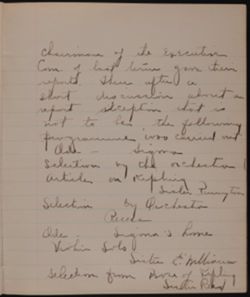 Chairman of the Execution
Com. of last term gave their
report. Then after a
short discussion about a
report reception that is
not to be the following
programme was carried out
Ode - Sigma
Selection by the orchestra
Article on Kipling
Sister Purington
Selection by Orchestra
Recess
Ode Sigma's home
Violin Solo
Sister E. Williams
Selection from Work of Kipling
Sister